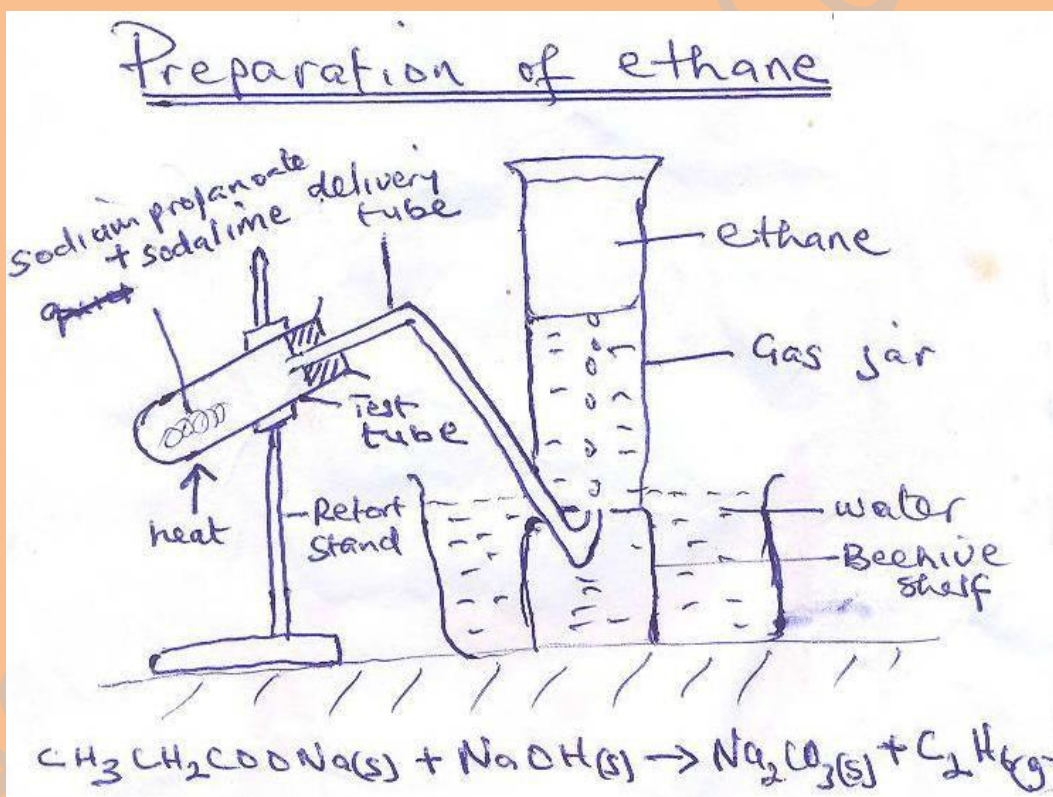 Preparation of ethane
sodium propanoate
+ sodalime
delivery
tube
ethane
Gas jar
Test
tube
heat
Retort
stand
water
Beehive
shelf
CH3CH2COONa(s) + NaOH(s) → Na2CO3(s) + C2H6(g)